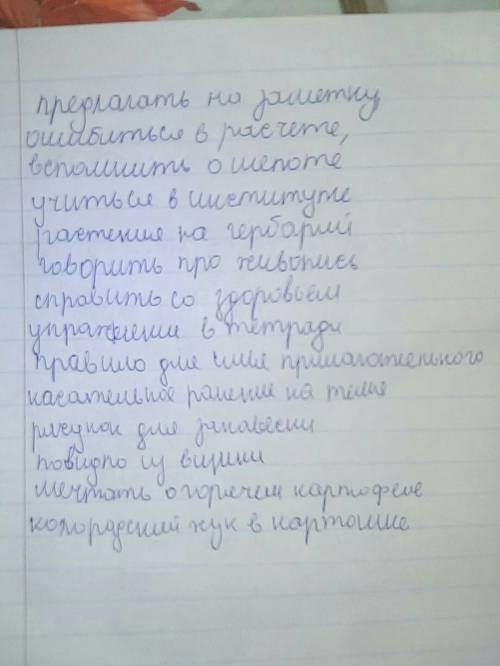 предлагать на заметку
ошибиться в расчете,
вспомнить о шепоте
учиться в институте
растения на гербарий
говорить про живопись
справить со здоровьем
упражнении в тетради
правило для имя прилагательного
касательное ранение на теле
рисунок для занавески
повидло из вишни
мечтать о горячем картофеле
колорадский жук в картошке